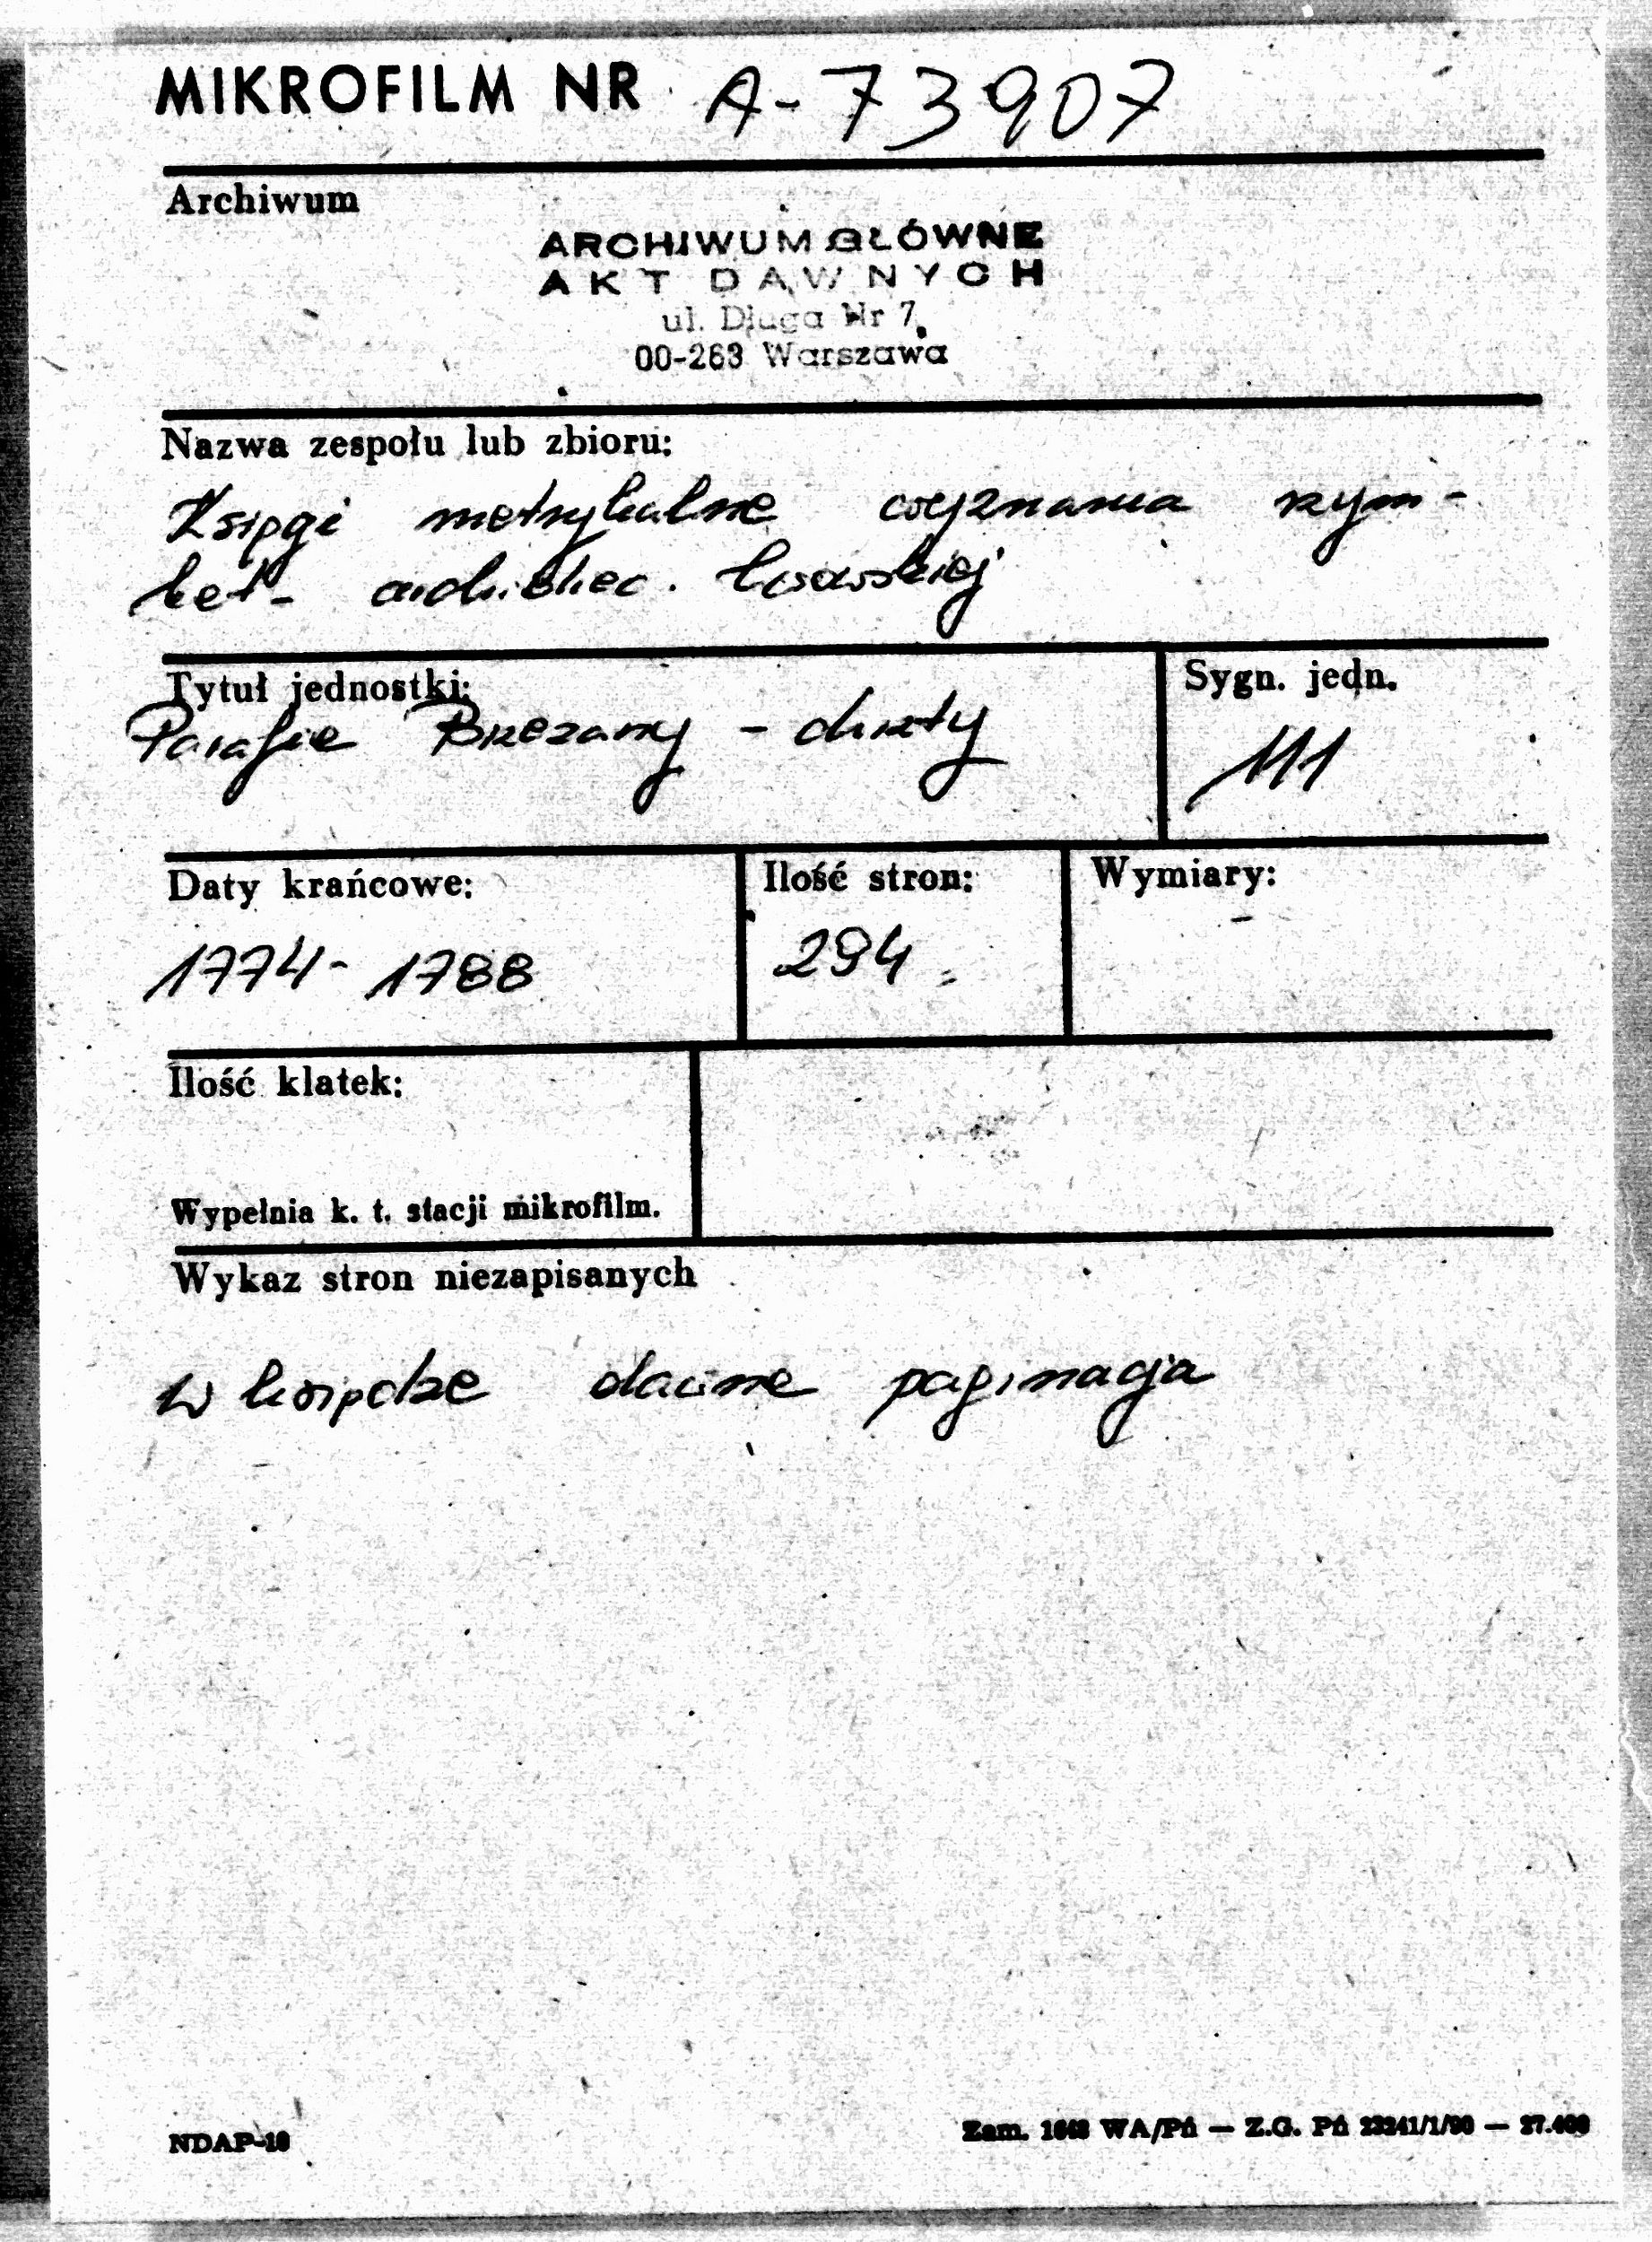 MIKROFILM NR A-73907
Archiwum
ARCHIWUM GŁÓWNE
AKT DAWNYCH
ul. Długa Nr 7
00-263 Warszawa
Nazwa zespołu lub zbioru:
Księgi metrykalne wyznania rzym-
kat- archidiec. lwowskiej
Tytuł jednostki:
Sygn. jedn.
Parafie Brzeżany - chrzty
111
Daty krańcowe:
Ilość stron:
Wymiary:
1774- 1788
294
-
Ilość klatek:
Wypełnia k. t. stacji mikrofilm.
Wykaz stron niezapisanych
w księdze dawne paginacja
NDAP-18
Zam. WA/Pń — Z.G. Pń 23241/1/90 —